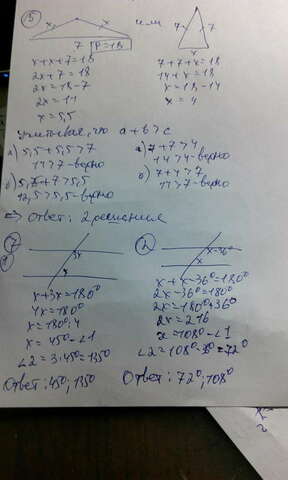 5
x x
7 P=18
или
7 7
x
x+x+7=18
2x+7=18
2x=18-7
2x=11
x=5,5
7+7+x=18
14+x=18
x=18-14
x=4
Учитывая, что a+b>c
а) 5,5+5,5>7
11>7-верно
б) 5,5+7>5,5
12,5>5,5-верно
а) 7+7>4
14>4-верно
б) 7+4>7
11>7-верно
=> Ответ: 2 решения
3x
x
x+3x=180°
4x=180°
x=180°:4
x=45°-∠1
∠2=3·45=135°
Ответ: 45°; 135°
2)
x-36°
x
x+x-36°=180°
2x-36°=180°
2x=180°+36°
2x=216
x=108°-∠1
∠2=108°-36°=72°
Ответ: 72°; 108°